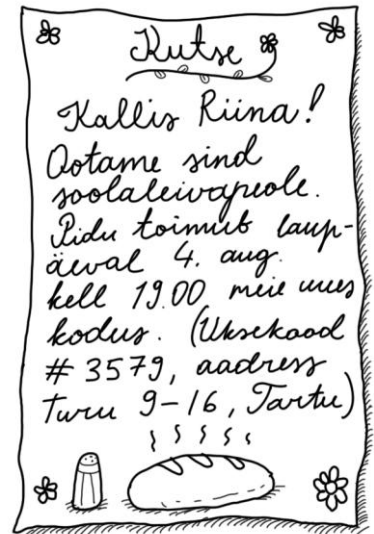 Kutse
Kallis Riina!
Ootame sind
soolaleivapeole.
Pidu toimub laup-
äeval 4. aug.
kell 19.00 meie uues
kodus. (Uksekood
# 3579, aadress
Turu 9-16, Tartu)